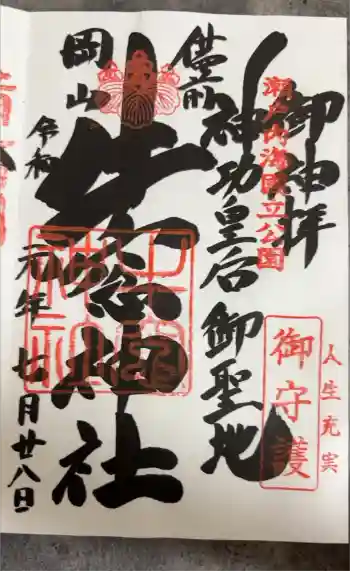 御神拝
瀬戸内海国立公園
人生充実
御守護
備前
神功皇后御聖地
岡山
牛窓神社
令和元年
七月廿八日
牛窓神社